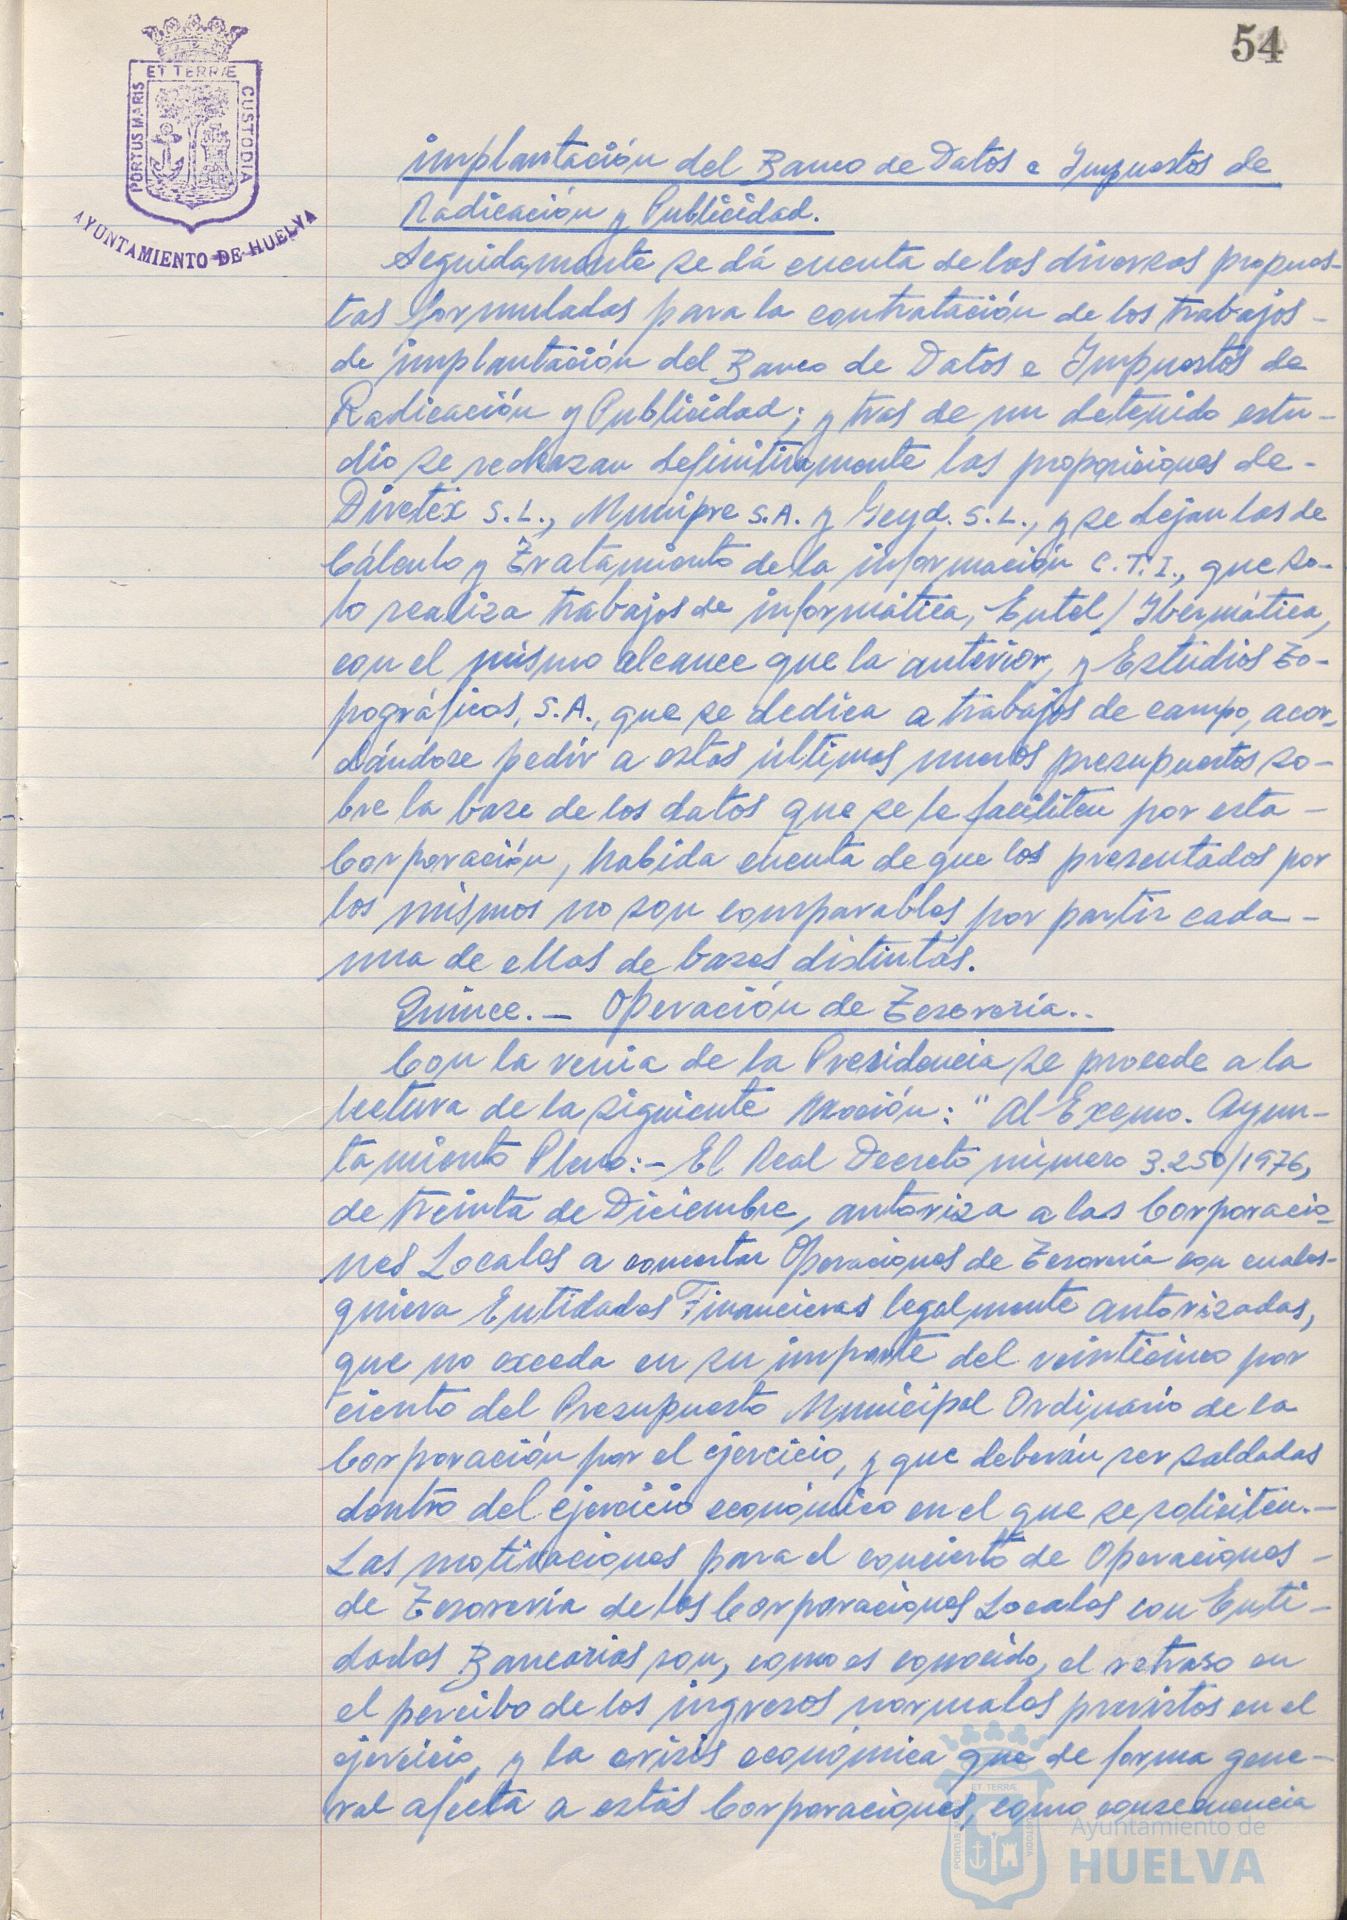 54
ET TERRÆ
PORTUS MARIS
CUSTODIA
AYUNTAMIENTO DE HUELVA
implantación del Banco de Datos e Impuestos de
Radicación y Publicidad.
Seguidamente se dá cuenta de las diversas propues-
tas formuladas para la contratación de los trabajos -
de implantación del Banco de Datos e Impuestos de
Radicación y Publicidad; y tras de un detenido estu-
dio se rechazan definitivamente las proposiciones de -
Divetex S.L., Munipre S.A. y Geyd. S.L., y se dejan las de
Cálculo y Tratamiento de la información C.T.I., que so-
lo realiza trabajos de informática, Entel / Ibermática,
con el mismo alcance que la anterior, y Estudios To-
pográficos, S.A., que se dedica a trabajos de campo, acor-
dándose pedir a estas últimas nuevos presupuestos so-
bre la base de los datos que se le faciliten por esta -
Corporación, habida cuenta de que los presentados por
los mismos no son comparables por partir cada -
una de ellas de bases distintas.
Quince. - Operación de Tesorería..
Con la venia de la Presidencia se procede a la
lectura de la siguiente Moción: "Al Excmo. Ayun-
tamiento Pleno: - El Real Decreto número 3.250/1976,
de treinta de Diciembre, autoriza a las Corporacio-
nes Locales a concertar Operaciones de Tesorería con cuales-
quiera Entidades Financieras legalmente autorizadas,
que no exceda en su importe del veinticinco por
ciento del Presupuesto Municipal Ordinario de la
Corporación por el ejercicio, y que deberán ser saldadas
dentro del ejercicio económico en el que se soliciten. -
Las motivaciones para el concierto de Operaciones -
de Tesorería de las Corporaciones Locales con Enti-
dades Bancarias son, como es conocido, el retraso en
el percibo de los ingresos normales previstos en el
ejercicio, y la crisis económica que de forma gene-
ral afecta a estas Corporaciones, como consecuencia
ET TERRÆ
PORTUS MARIS
CUSTODIA
Ayuntamiento de
HUELVA